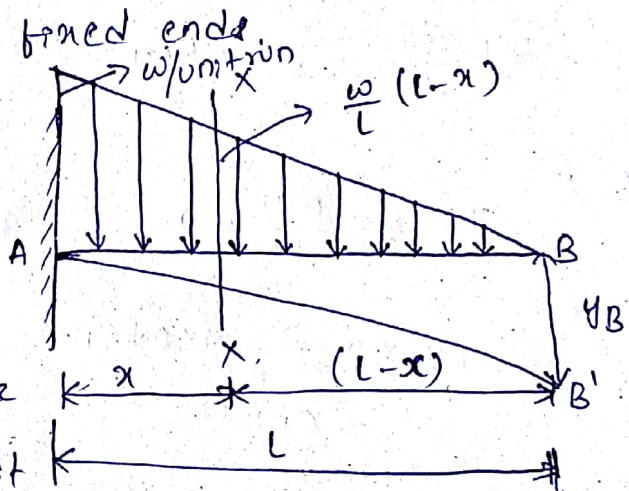 fixed ends
w/unit run
X
w/L (L-x)
A
B
yB
X.
x
(L-x)
B'
L